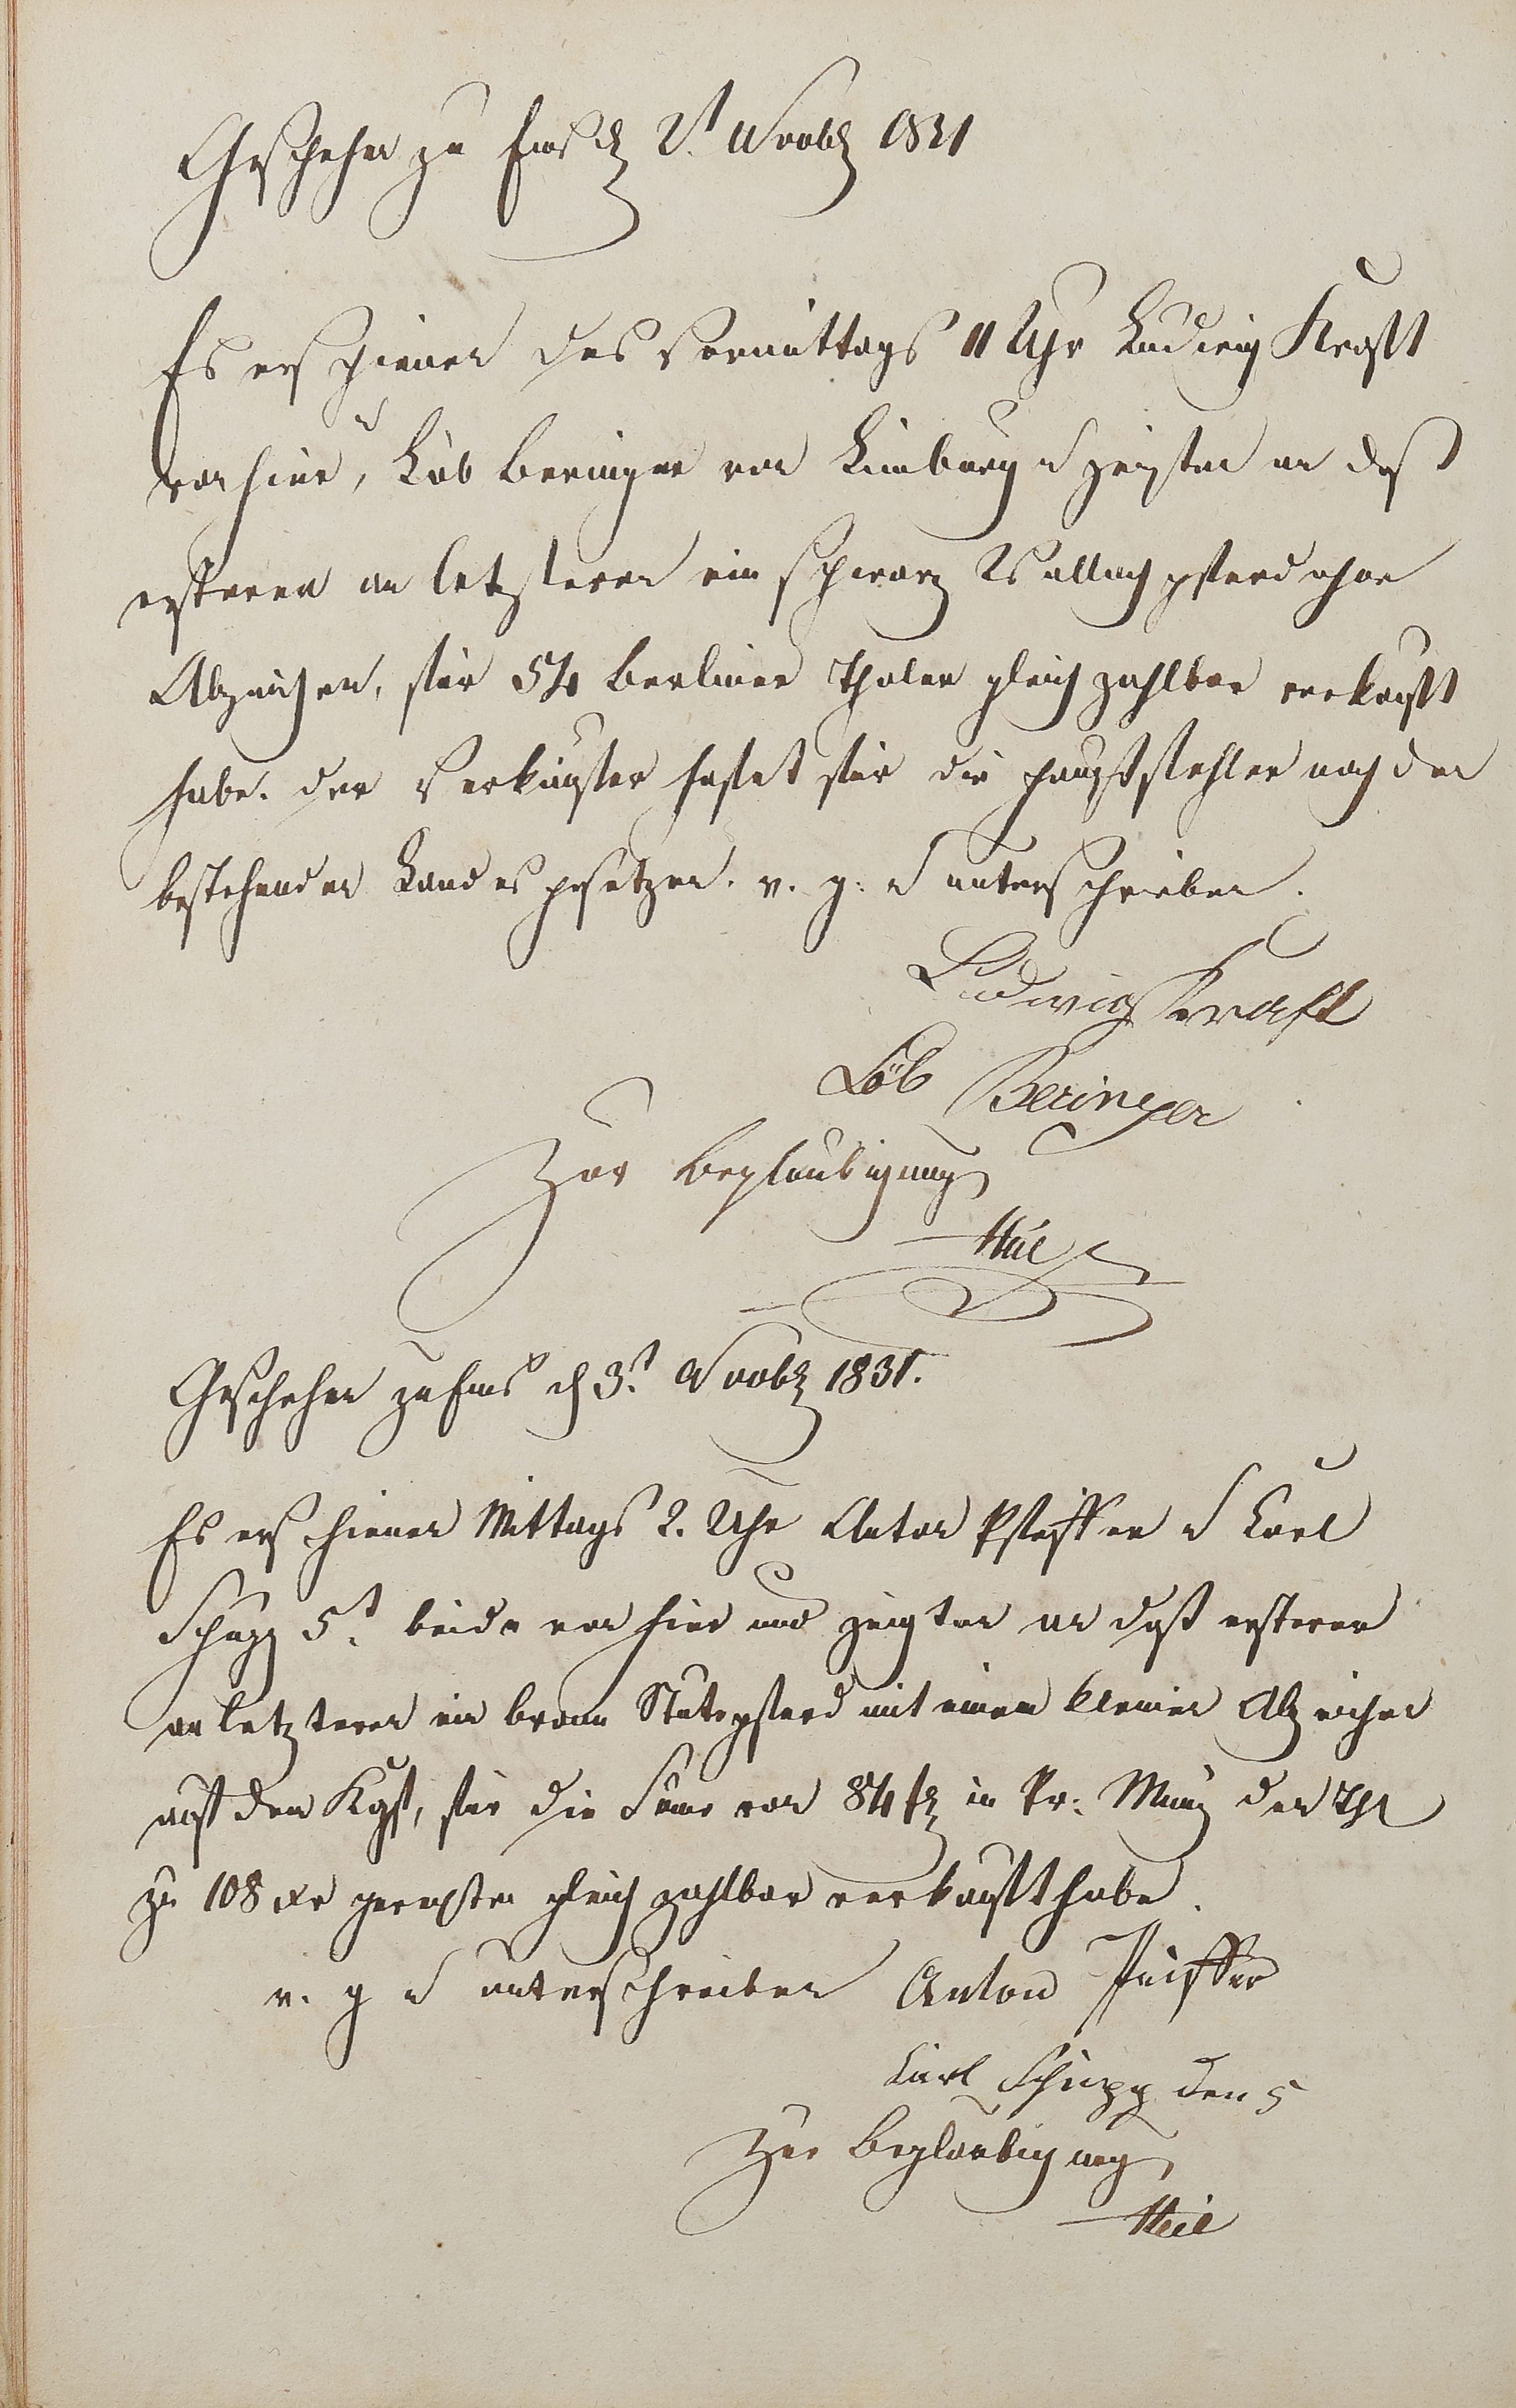 Geschehen zu Ems d 2t Novbr 1831
Es erschienen des Vormittags 11 Uhr Ludwig Kraft
von hier, u Löb Beringer von Limburg u zeigten an daß
ersterer an letzteren ein schwarz Wallachpferd ohne
Abzeichen, für 54 Berliner Thaler gleich zahlbar verkauft
habe. der Verkäufer haftet für die Hauptfehler nach den
bestehenden Landesgesetzen. v. g. u unterschrieben.
Ludwig Kraft
Löb Beringer
Zur Beglaubigung
Geschehen zu Ems d 3t Novbr 1831.
Es erschienen Mittags 2. Uhr Anton Pfeiffer u Karl
Schupp 5t beide von hier und zeigten an daß ersterer
an letzteren ein braun Stutepferd mit einem kleinen Abzeichen
auf dem Kopf, für die Sume von 84 fl in Pr. Münz den Thl
zu 108 xr gerechnet gleich zahlbar verkauft habe.
v. g u unterschrieben Anton Pfeiffer
Karl Schupp den 5
Zur Beglaubigung